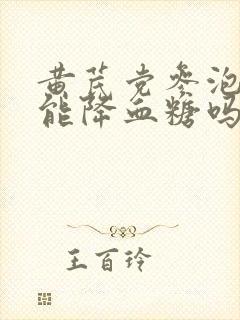 黄芪党参泡
能降血糖吗
王百玲